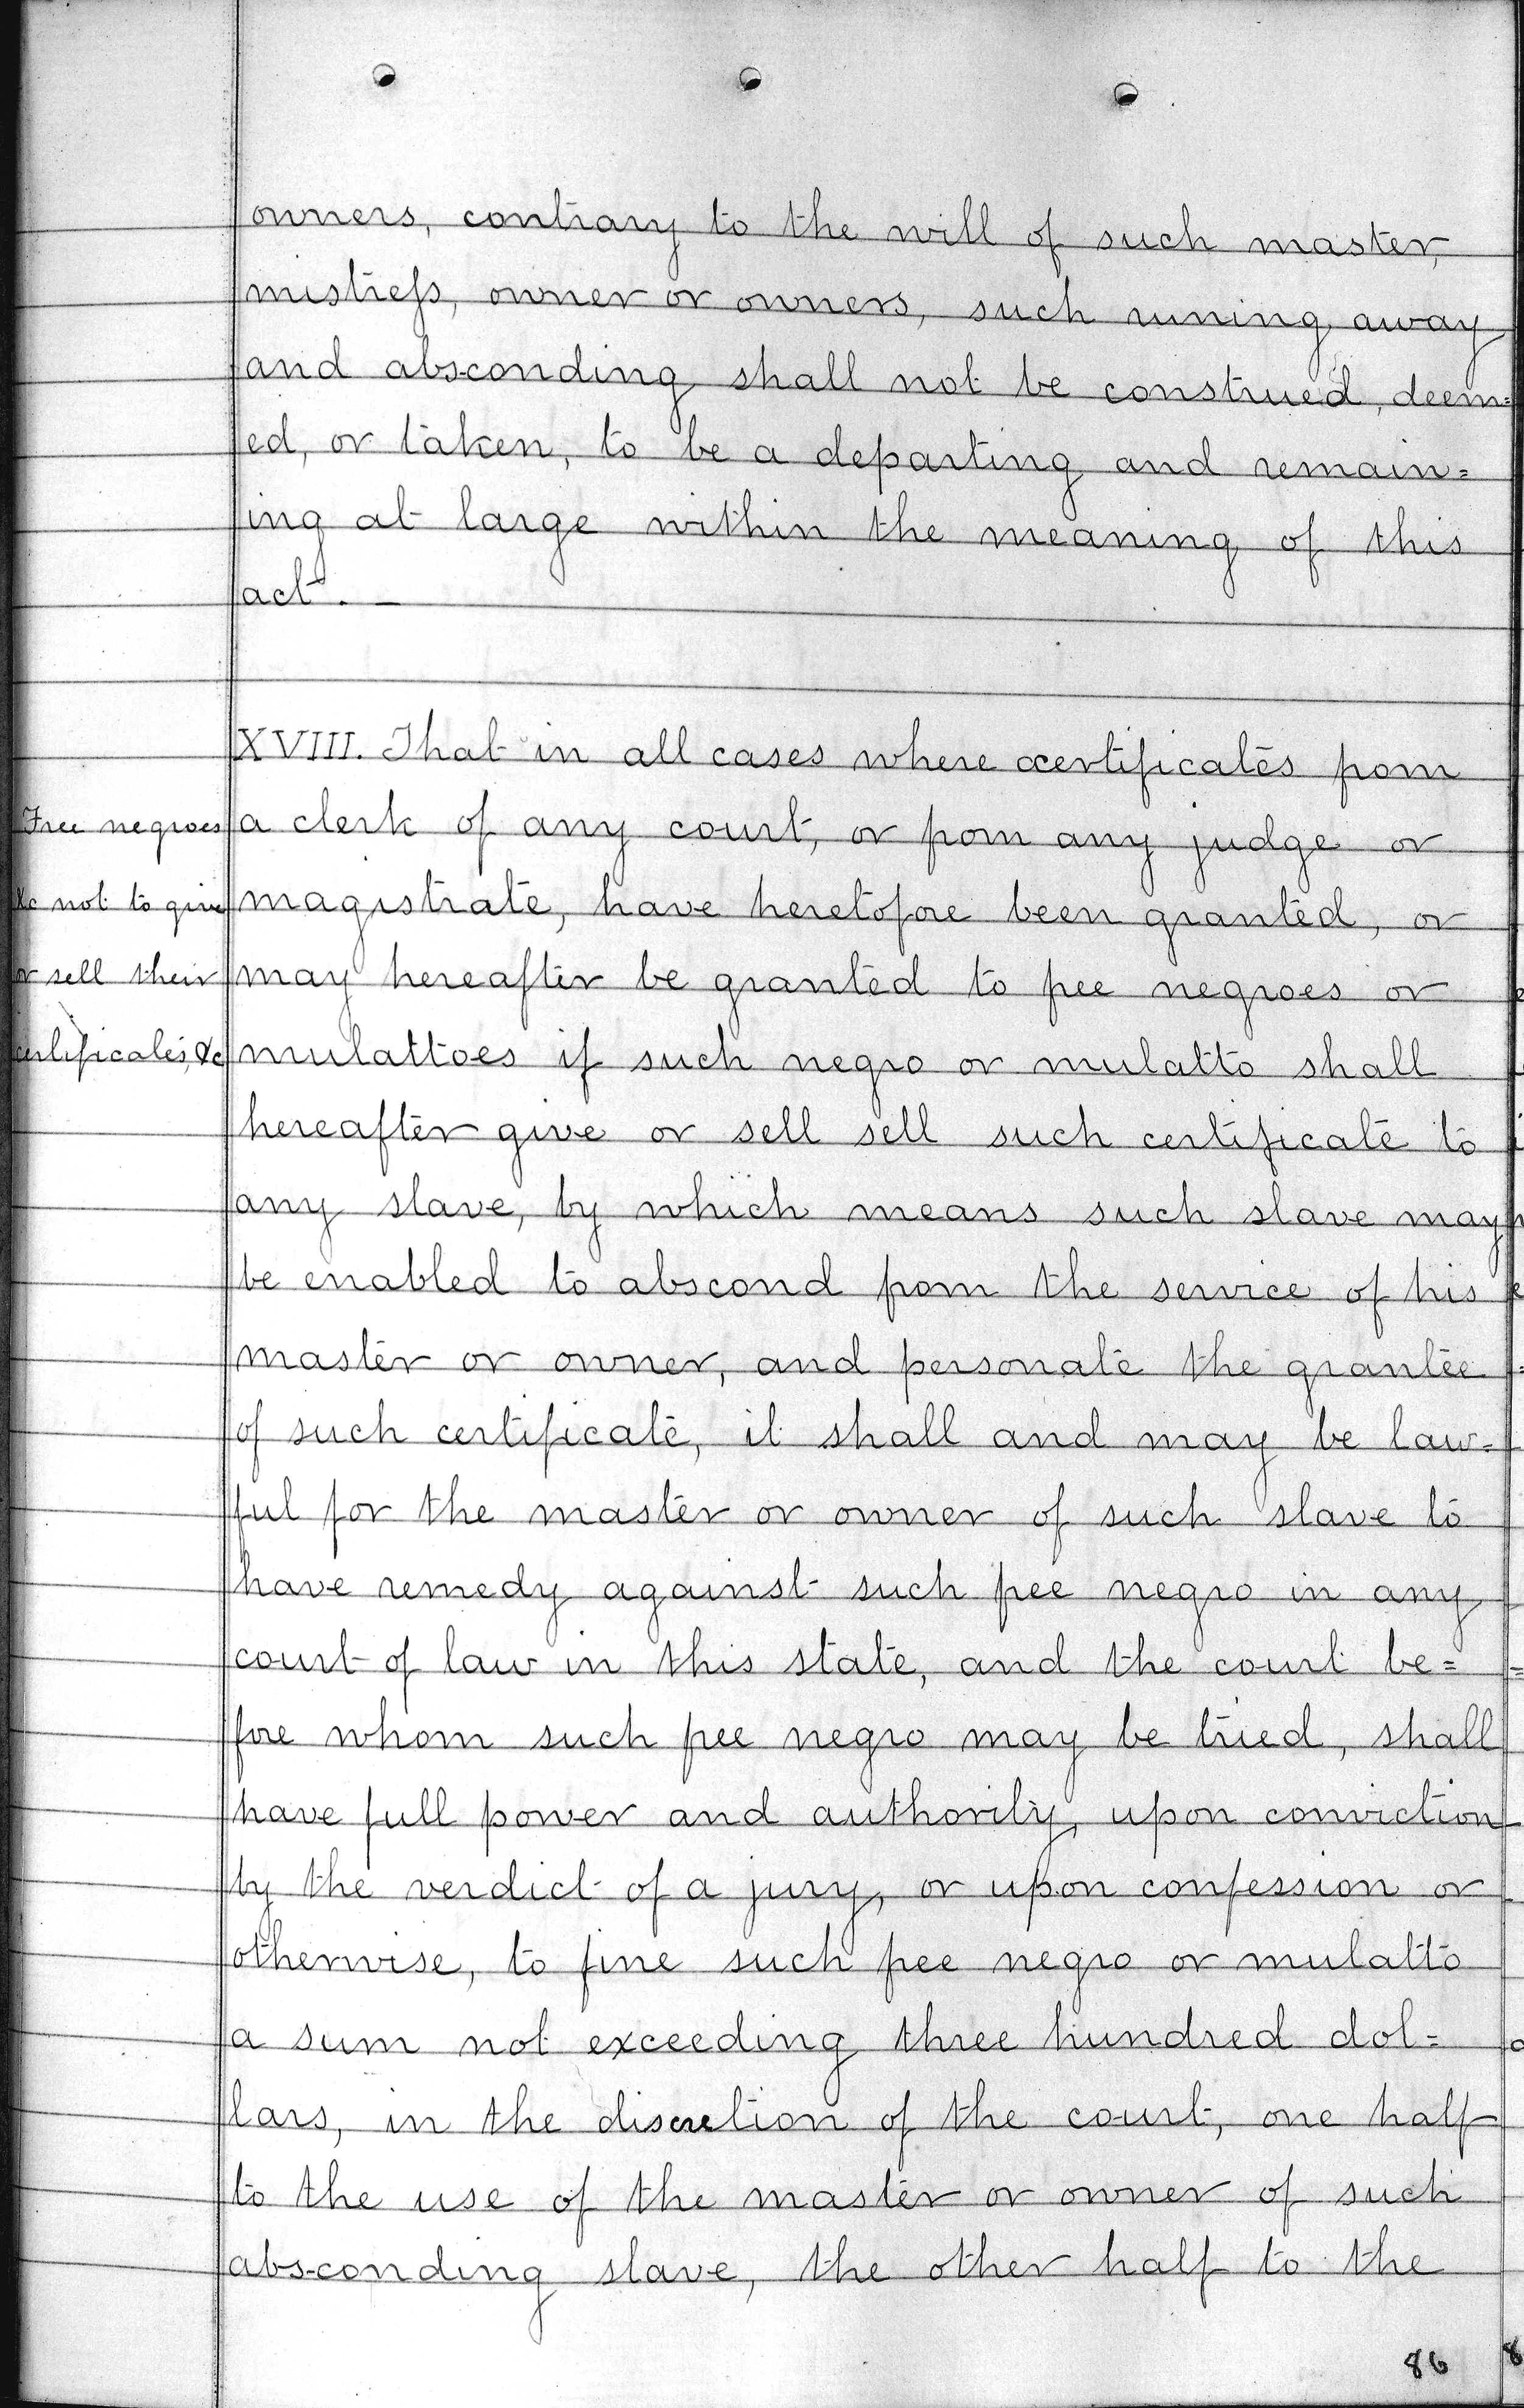 owners, contrary to the will of such master,
mistress, owner or owners, such runing away
and absconding shall not be construed, deem=
ed, or taken, to be a departing and remain=
ing at large within the meaning of this
act. —
XVIII. That in all cases where certificates from
a clerk of any court, or from any judge or
magistrate, have heretofore been granted, or
may hereafter be granted to free negroes or
mulattoes if such negro or mulatto shall
hereafter give or sell sell such certificate to
any slave, by which means such slave may
be enabled to abscond from the service of his
master or owner, and personate the grantee
of such certificate, it shall and may be law=
ful for the master or owner of such slave to
have remedy against such free negro in any
court of law in this state, and the court be=
fore whom such free negro may be tried, shall
have full power and authority, upon conviction
by the verdict of a jury, or upon confession or
otherwise, to fine such free negro or mulatto
a sum not exceeding three hundred dol=
lars, in the discretion of the court, one half
to the use of the master or owner of such
absconding slave, the other half to the
Free negroes
&c not to give
or sell their
certificates, &c
86